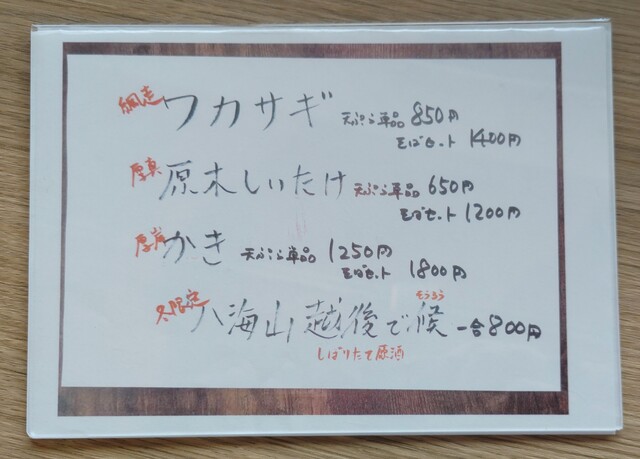 網走 ワカサギ 天ぷら単品 850円
そばセット 1400円
厚真 原木しいたけ 天ぷら単品 650円
そばセット 1200円
厚岸 かき 天ぷら単品 1250円
そばセット 1800円
そうろう
冬限定 八海山 越後で候 一合800円
しぼりたて原酒